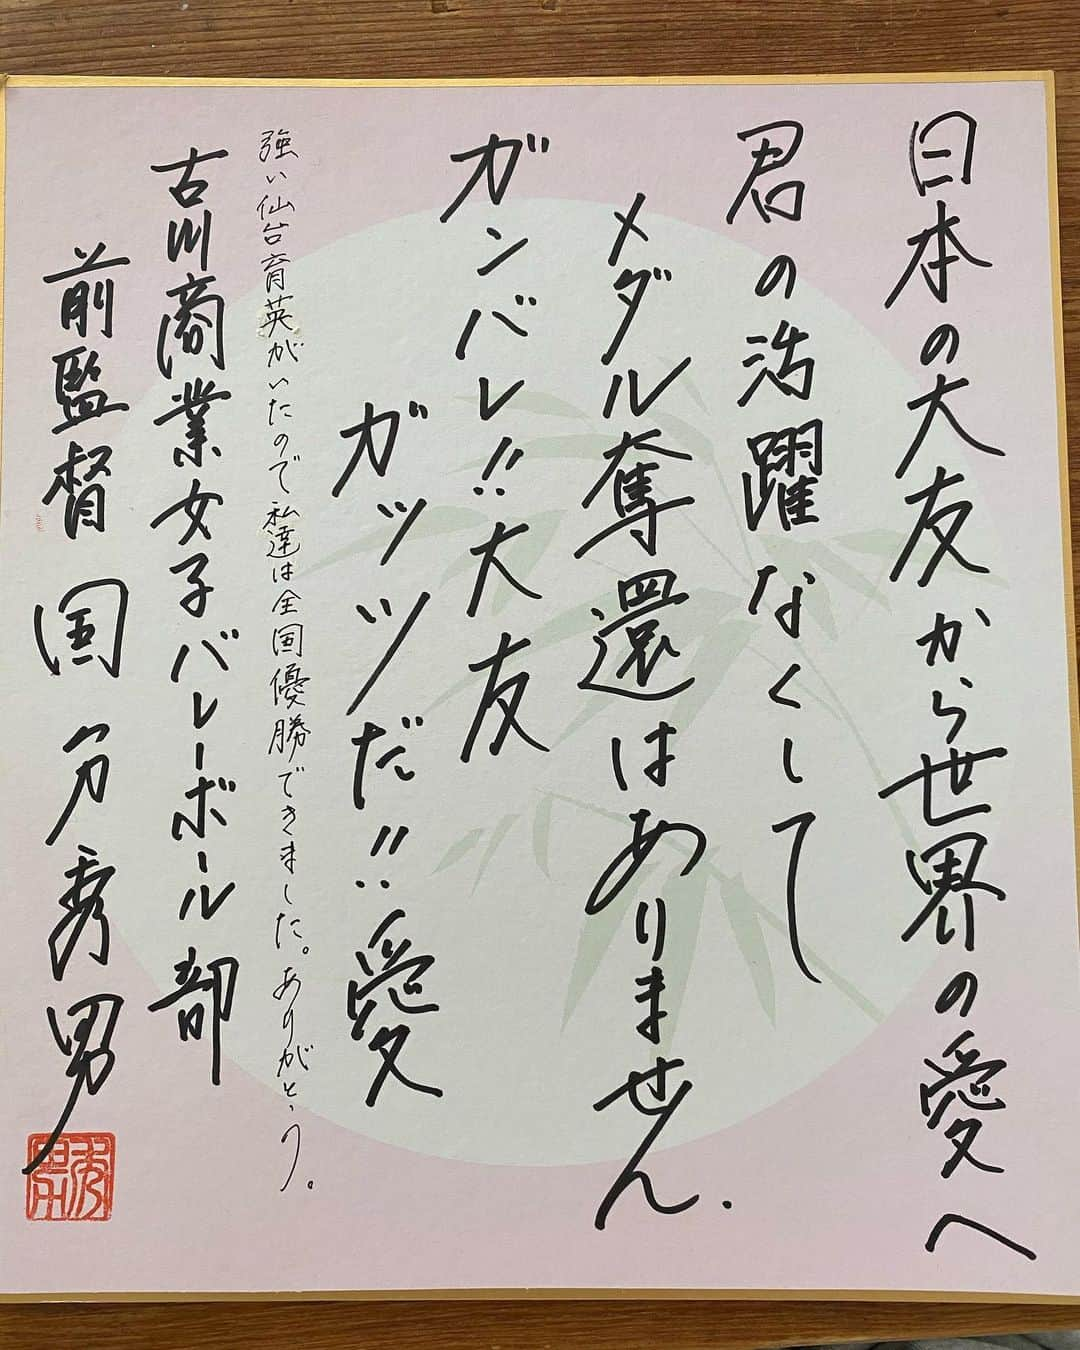 日本の大友から世界の愛へ
君の活躍なくして
メダル奪還はありません.
ガンバレ!!大友
ガッツだ!!愛
強い仙台育英がいたので私達は全国優勝できました。ありがとう。
古川商業女子バレーボール部
前監督 国分秀男
秀男